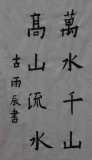 萬水千山
高山流水
古雨辰書